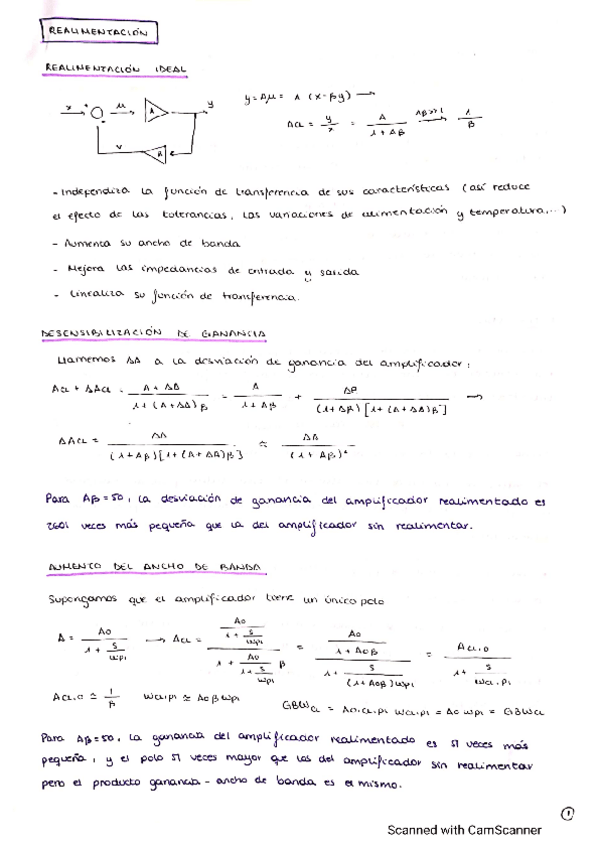 REALIMENTACIÓN
REALIMENTACIÓN IDEAL
x + μ A y
v
y = Aμ = A (x-βy) →
ACL = y/x = A/(1 + Aβ) Aβ>>1 → 1/β
- Independiza la función de transferencia de sus características (así reduce
el efecto de las tolerancias, las variaciones de alimentación y temperatura,...)
- Aumenta su ancho de banda
- Mejora las impedancias de entrada y salida
- Linealiza su función de transferencia.
DESENSIBILIZACIÓN DE GANANCIA
Llamemos ΔA a la desviación de ganancia del amplificador:
ACL + ΔACL = (A + ΔA)/(1 + (A+ΔA)β) = A/(1 + Aβ) + ΔA/((1+Aβ)[1+(A+ΔA)β]) →
ΔACL = ΔA/((1+Aβ)[1+(A+ΔA)β]) ≈ ΔA/(1+Aβ)²
Para Aβ=50, la desviación de ganancia del amplificador realimentado es
2601 veces más pequeña que la del amplificador sin realimentar.
AUMENTO DEL ANCHO DE BANDA
Supongamos que el amplificador tiene un único polo
A = Ao/(1 + s/ωp1) → ACL = (Ao/(1 + s/ωp1))/(1 + Ao/(1 + s/ωp1) β) = (Ao/(1 + Aoβ))/(1 + s/((1+Aoβ)ωp1)) = ACL.0/(1 + s/ωCL.p1)
ACL.0 ≃ 1/β ωCL.p1 ≃ Aoβωp1 GBWCL = Ao.CL.p1 ωCL.p1 = Ao ωp1 = GBWCL
Para Aβ=50, la ganancia del amplificador realimentado es 51 veces más
pequeña, y el polo 51 veces mayor que las del amplificador sin realimentar
pero el producto ganancia - ancho de banda es el mismo.
1
Scanned with CamScanner